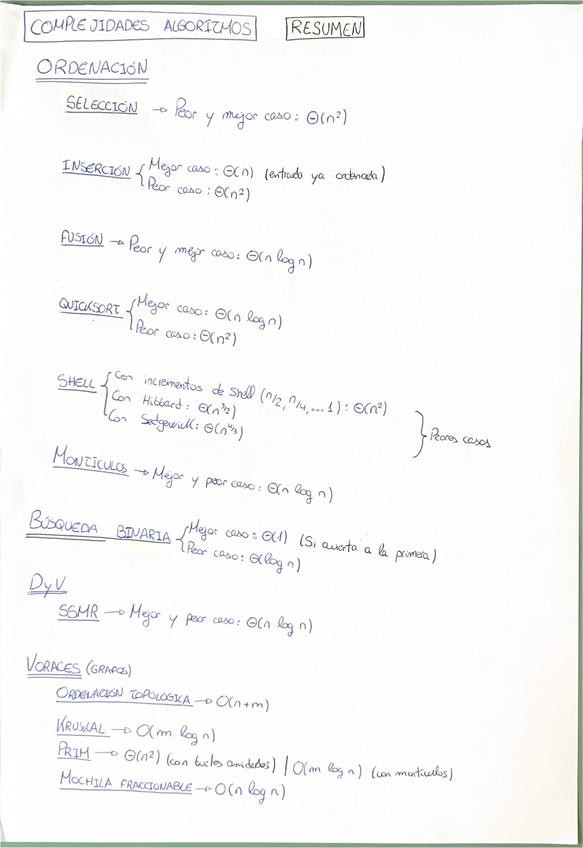 COMPLEJIDADES ALGORITMOS RESUMEN
ORDENACIÓN
SELECCIÓN → Peor y mejor caso: Θ(n²)
INSERCIÓN { Mejor caso: Θ(n) (entrada ya ordenada)
Peor caso: Θ(n²)
FUSIÓN → Peor y mejor caso: Θ(n log n)
QUICKSORT { Mejor caso: Θ(n log n)
Peor caso: Θ(n²)
SHELL { Con incrementos de Shell (n/2, n/4, ... 1): Θ(n²)
Con Hibbard: Θ(n^3/2)
Con Sedgewick: Θ(n^4/3)
} Peores casos
MONTÍCULOS → Mejor y peor caso: Θ(n log n)
BÚSQUEDA BINARIA { Mejor caso: Θ(1) (Si acierta a la primera)
Peor caso: Θ(log n)
DyV
SSMR → Mejor y peor caso: Θ(n log n)
VORACES (GRAFOS)
ORDENACIÓN TOPOLÓGICA → O(n+m)
KRUSKAL → O(m log n)
PRIM → Θ(n²) (con bucles anidados) | O(m log n) (con montículos)
MOCHILA FRACCIONABLE → O(n log n)